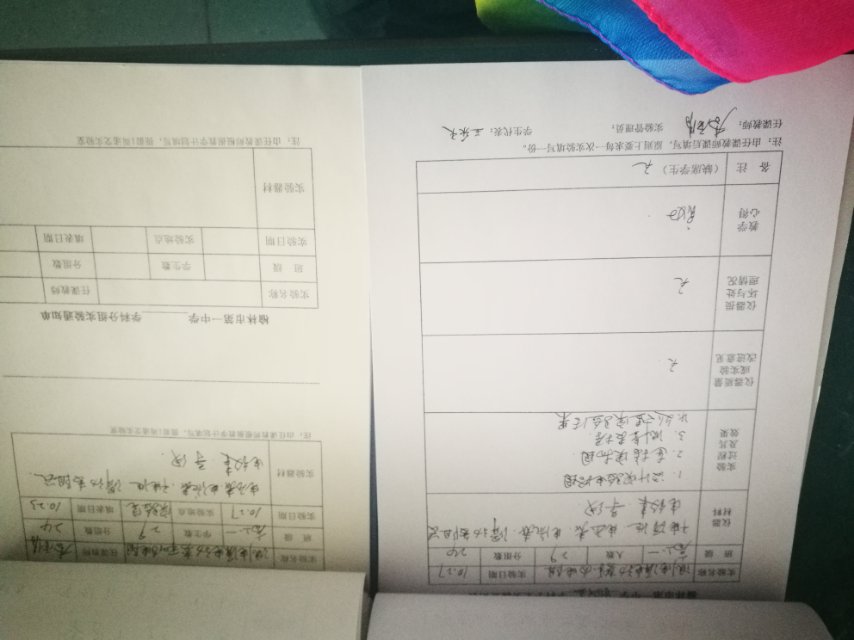 实验名称 测电源电动势和内阻 实验日期 10.27
班 级 高二一 人数 29 分组数 24
仪器材料 干电池、电压表、电流表、滑动变阻器
电键 导线
实验过程及其效果 1. 设计实验电路图
2. 连接实物图
3. 测量数据
仪器质量或实验改进意见 无
仪器损坏与处理情况 无
教学心得 良好
备 注 (缺席学生) 无
注:由任课教师课后填写,原则上要求每一次实验填写一份。
任课教师: 实验管理员: 学生代表:
实验名称 任课教师
班 级 高二一 学生数 29 分组数 24
实验日期 10.27 实验地点 实验室 填表日期 10.23
实验器材 电压表 电流表 干电池 滑动变阻器
电键 导线
注:由任课教师根据教学计划填写,提前1周送交实验室
榆林市第一中学 学科分组实验通知单
实验名称 任课教师
班 级 学生数 分组数
实验日期 实验地点 填表日期
实验器材
注:由任课教师根据教学计划填写,提前1周送交实验室